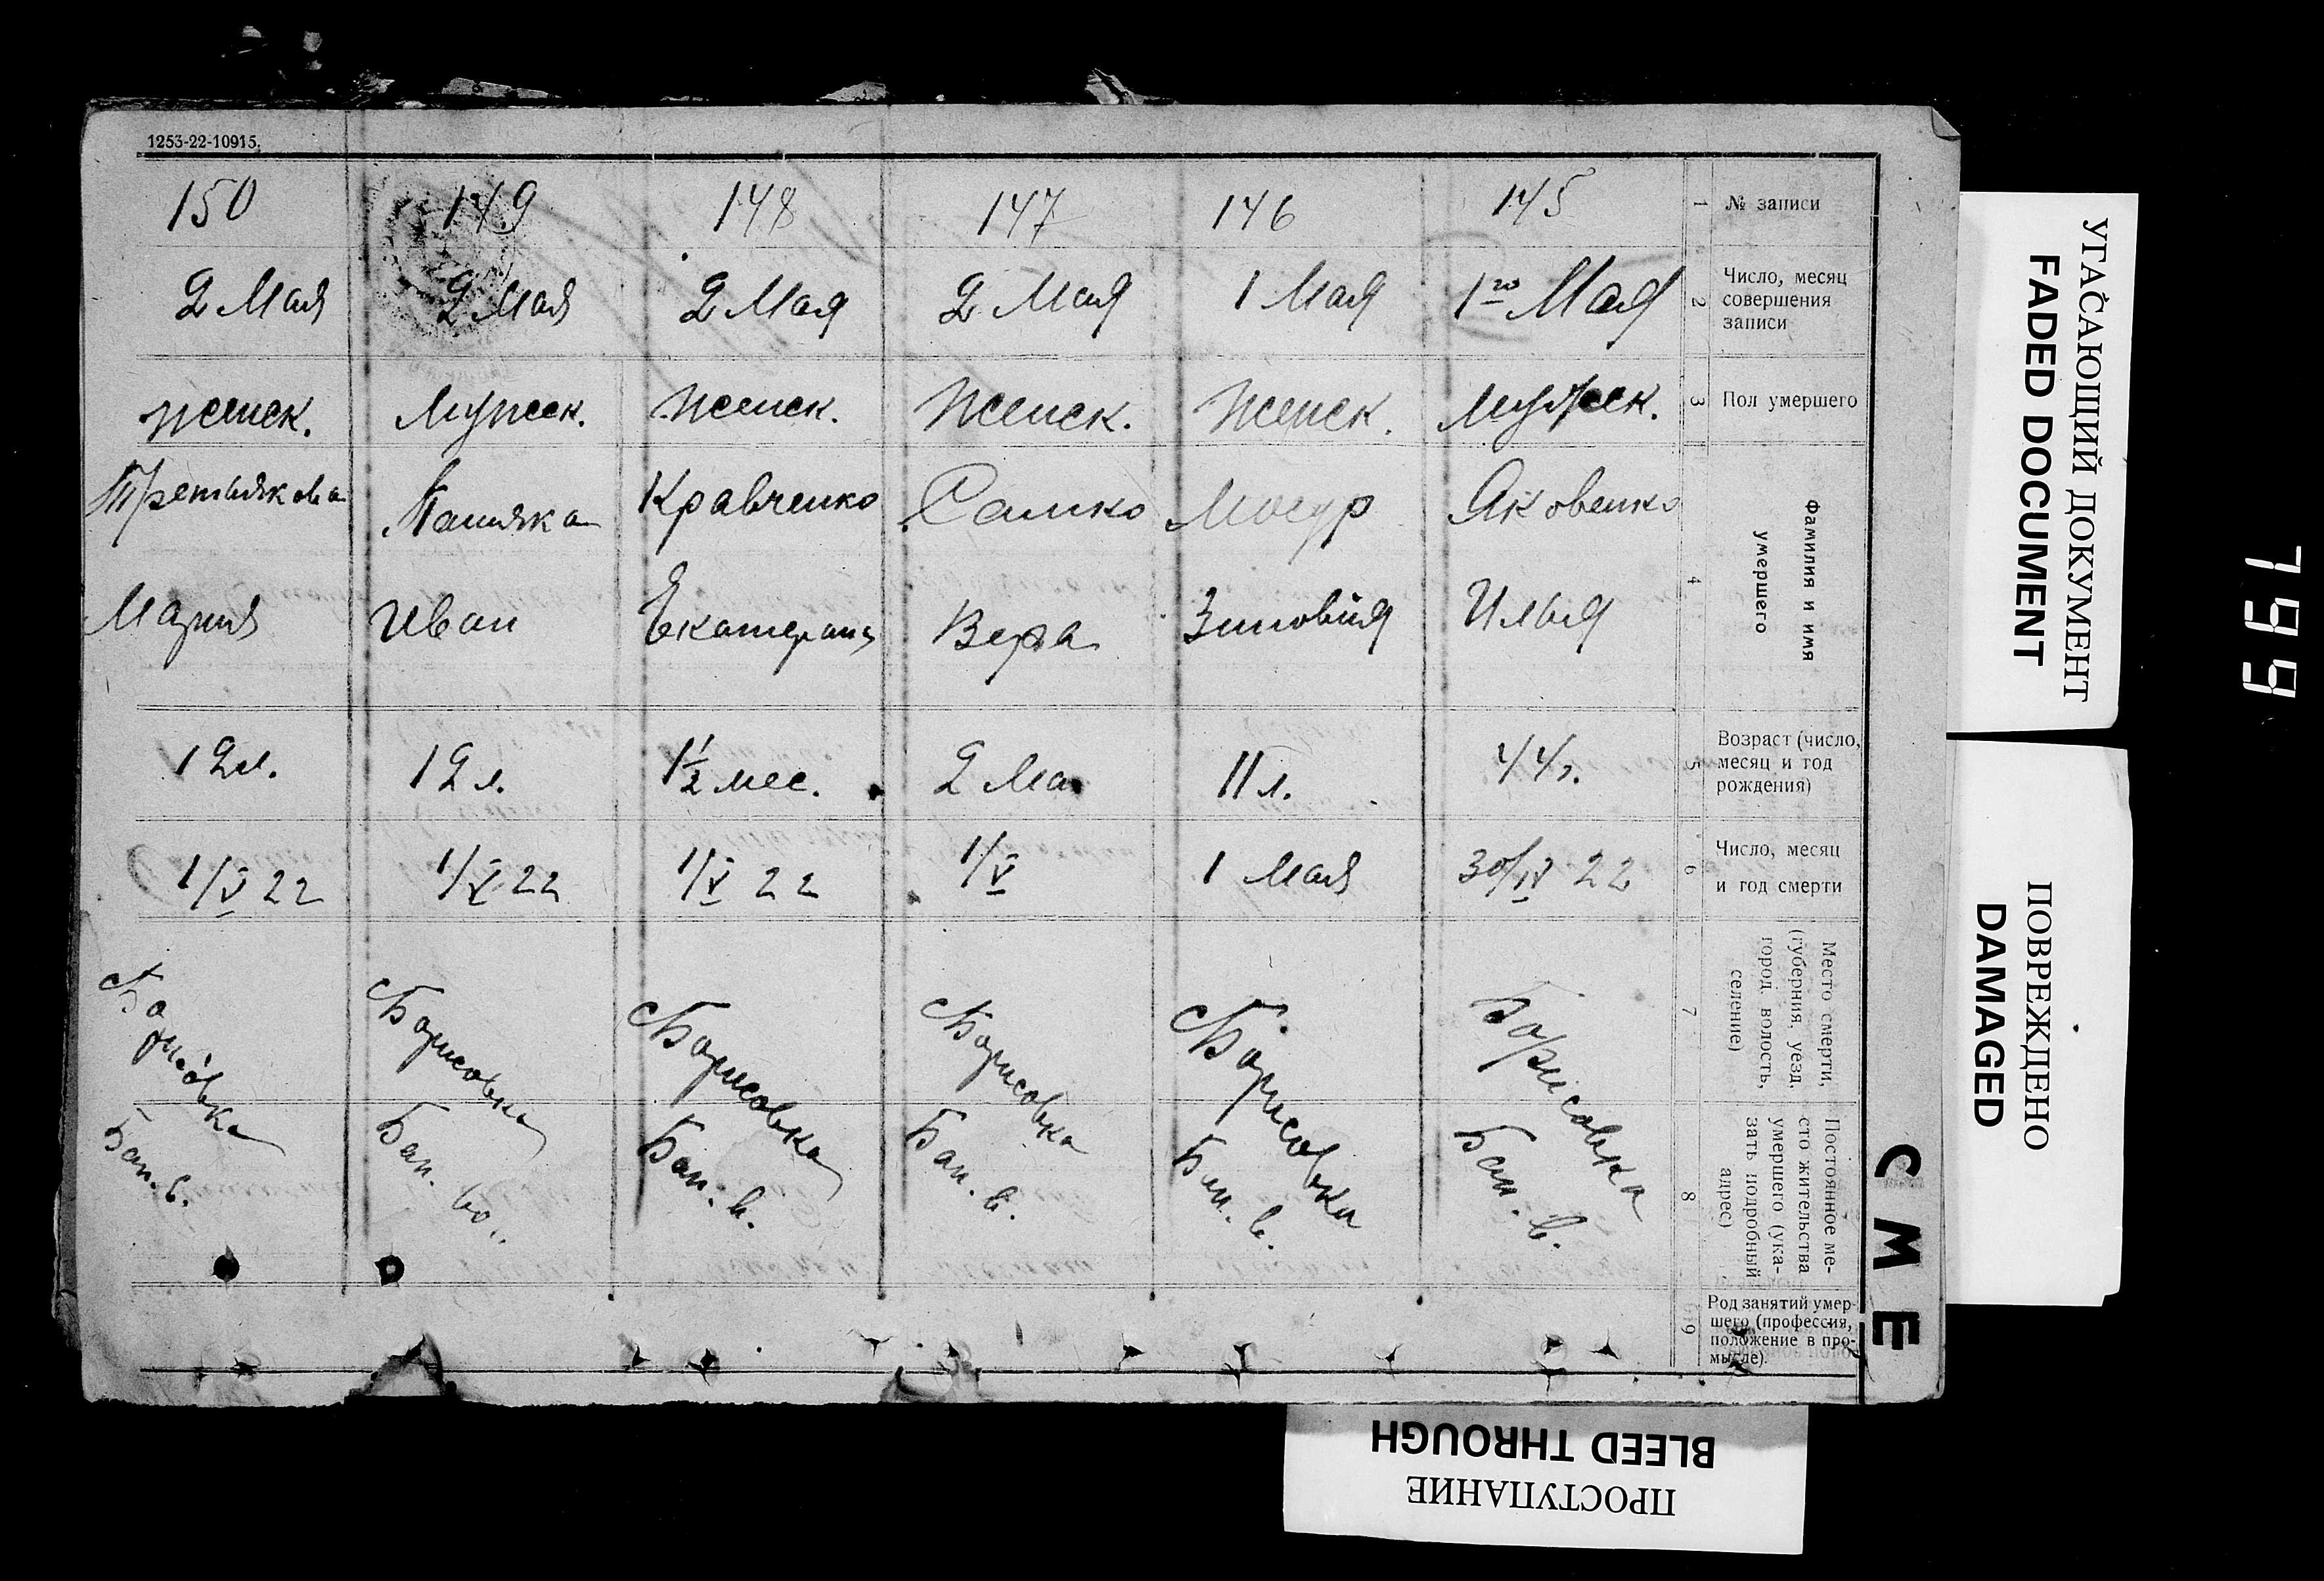 1253-22-10915.
№ записи
1
145
146
147
148
149
150
Число, месяц
совершения
записи
2
1го Мая
1 Мая
2 Мая
2 Мая
2 Мая
2 Мая
Пол умершего
3
Мужеск.
Женск.
Женск.
Женск.
Мужеск.
женск.
Фамилия и имя
умершего
4
Яковенко
Илья
Мосур
Зиновия
Сашко
Вера
Кравченко
Екатерина
Иван
Третьякова
Мария
Возраст (число,
месяц и год
рождения)
5
44 г.
11 л.
2 Ма
1½ мес.
12 л.
12 л.
Число, месяц
и год смерти
6
30/IV 22
1 Мая
1/V
1/V 22
1/V 22
1/V 22
Место смерти,
(губерния, уезд,
город. волость,
селение)
7
Борисовка
Борисовка
Борисовка
Борисовка
Борисовка
Борисовка
Постоянное ме-
сто жительства
умершего (ука-
зать подробный
адрес)
8
Бан. в.
Бан. в.
Бан. в.
Бан. в.
Бан. во..
Бан. в.
Род занятий умер-
шего (профессия,
положение в про-
мысле).
9
СМЕ
УГАСАЮЩИЙ ДОКУМЕНТ
FADED DOCUMENT
ПОВРЕЖДЕНО
DAMAGED
BLEED THROUGH
ПРОСТУПАНИЕ
799